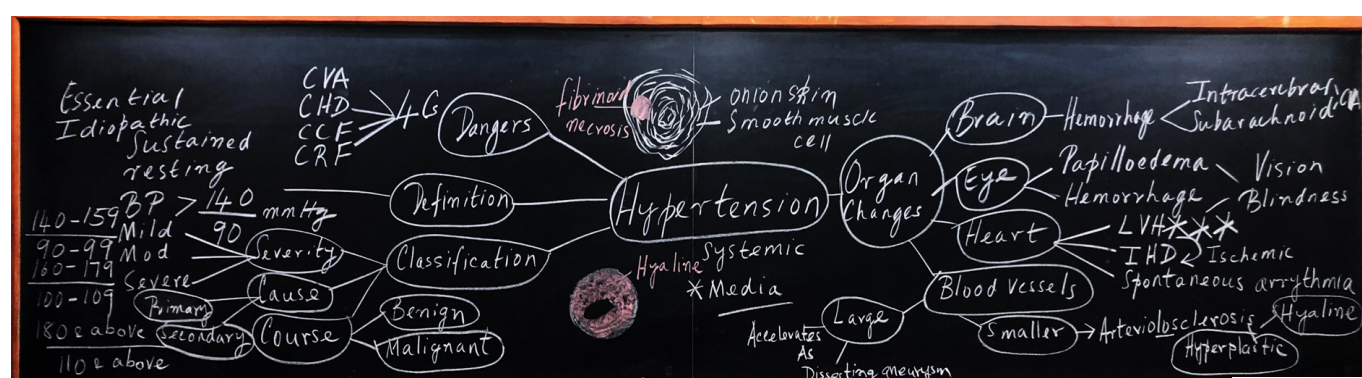 Essential
Idiopathic
Sustained
resting
BP > 140
90
mmHg
140-159
90-99
160-179
100-109
180 & above
110 & above
Mild
Mod
Severe
Primary
Secondary
CVA
CHD
CCF
CRF
4 Cs
Dangers
Definition
Classification
Severity
Cause
Course
Benign
Malignant
fibrinoid
necrosis
onion skin
Smooth muscle
cell
Hypertension
Systemic
Hyaline
* Media
Organ
Changes
Brain
Hemorrhage
Intracerebral
Subarachnoid
Eye
Papilloedema
Hemorrhage
Vision
Blindness
Heart
LVH ***
IHD
Ischemic
Spontaneous arrythmia
Blood vessels
Large
Accelerates
As
Dissecting aneurysm
Smaller
Arteriolosclerosis
Hyaline
Hyperplastic